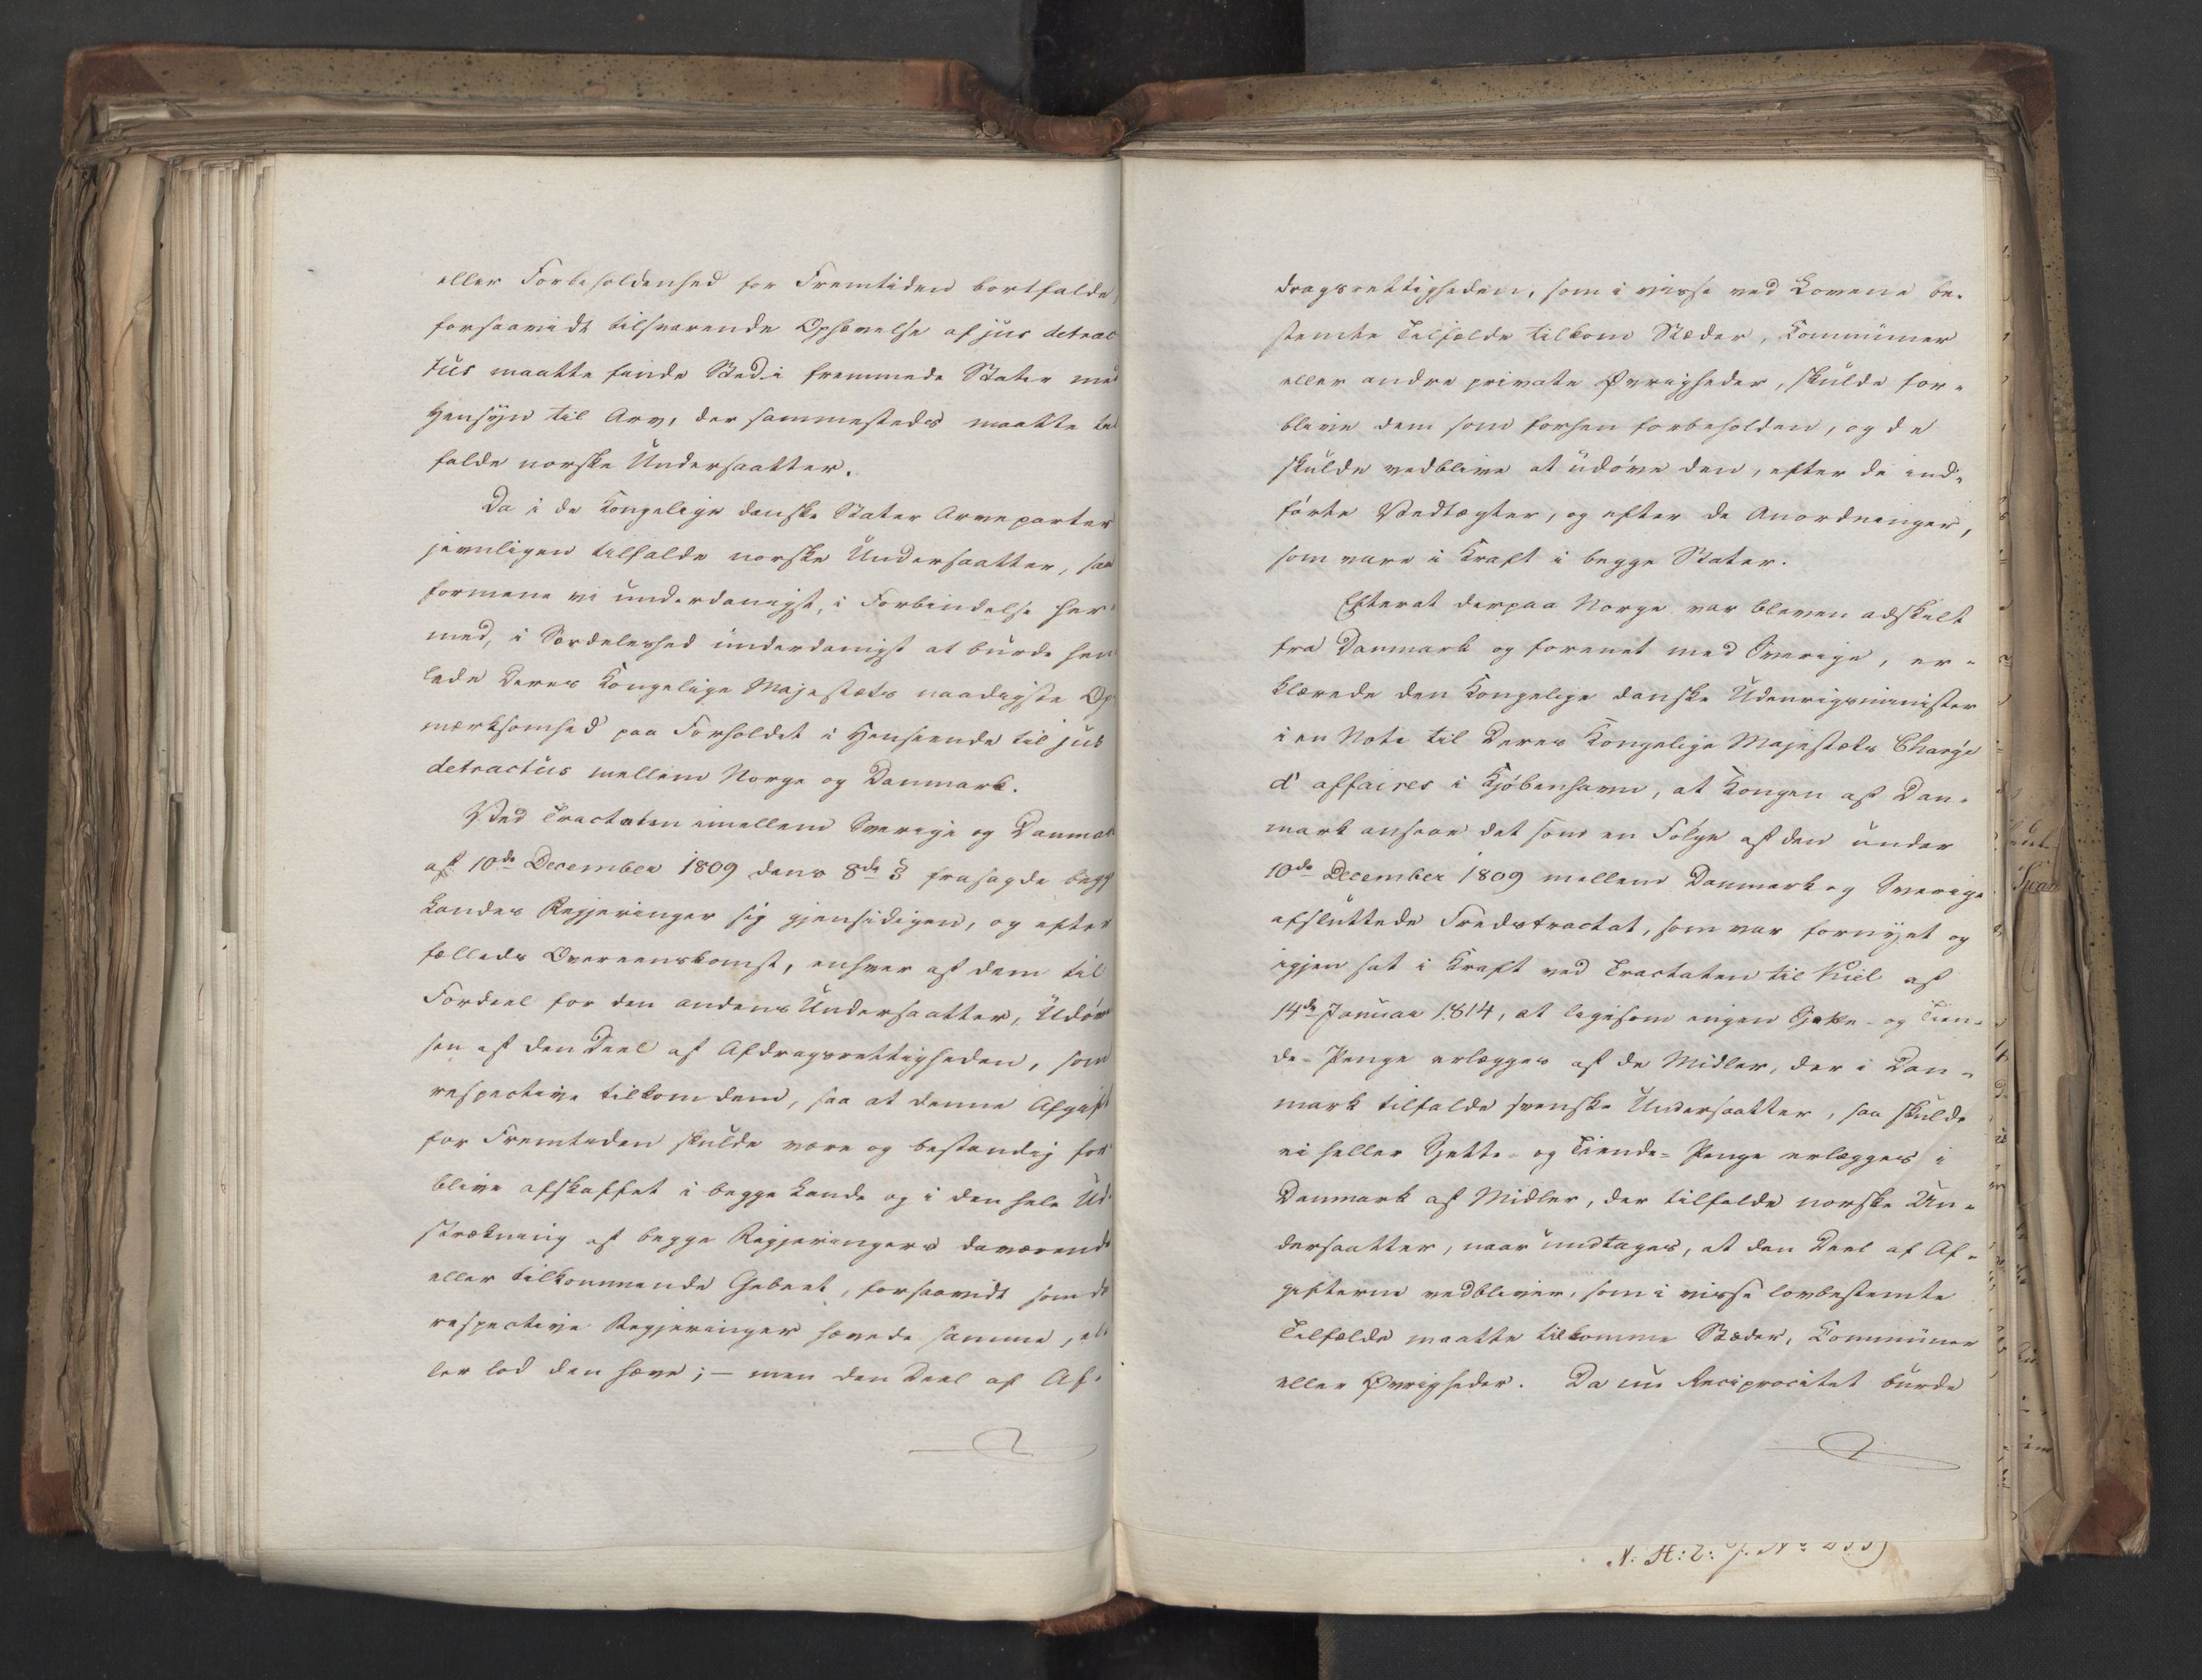 eller Forbeholdenhed for Fremtiden bortfalde,
forsaavidt tilsvarende Ophævelse af jus detrac
tus maatte finde Sted i fremmede Stater med
Hensyn til Arv, der sammesteds maatte til
falde norske Undersaatter.
Da i de Kongelige danske Stater Arveparter
jevnligen tilfalde norske Undersaatter, saa
formene vi underdanigst, i Forbindelse her-
med, i Særdeleshed underdanigst at burde hen
lede Deres Kongelige Majestæts naadigste Op
mærksomhed paa Forholdet i Henseende til jus
detractus mellem Norge og Danmark.
Ved Tractaten imellem Sverige og Danmark
af 10de December 1809 dens 8de § frasagde begge
Landes Regjeringer sig gjensidigen, og efter
fælleds Overeenskomst, enhver af dem til
Fordeel for den andens Undersaatter, Udøvel
sen af den Deel af Afdragsrettigheden, som
respective tilkom dem, saa at denne Afgift
for Fremtiden skulde være og bestandig for-
blive afskaffet i begge Lande og i den hele Ud-
strækning af begge Regjeringers daværende
eller tilkommende Gebeet, forsaavidt som de
respective Regjeringer hævede samme, el-
ler lod den hæve; – men den Deel af Af-
dragsrettigheden, som i visse ved Lovene be-
stemte Tilfælde tilkom Stæder, Communer
eller andre private Øvrigheder, skulde for-
blive dem som forhen forbeholden, og de
skulde vedblive at udøve den, efter de ind-
førte Vedtægter, og efter de Anordninger,
som vare i Kraft i begge Stater.
Efterat derpaa Norge var bleven adskilt
fra Danmark og forenet med Sverige, er-
klærede den Kongelige danske Udenrigsminister
i en Note til Deres Kongelige Majestæts Chargé
d'affaires i Kjøbenhavn, at Kongen af Dan-
mark ansaae det som en Følge af den under
10de December 1809 mellem Danmark og Sverige
afsluttede Fredstractat, som var fornyet og
igjen sat i Kraft ved Tractaten til Kiel af
14de Januar 1814, at ligesom ingen Sjette- og Tien-
de-Penge erlægges af de Midler, der i Dan-
mark tilfalde svenske Undersaatter, saa skulde
ei heller Sjette- og Tiende-Penge erlægges i
Danmark af Midler, der tilfalde norske Un-
dersaatter, naar undtages, at den Deel af Af-
gifterne vedbliver, som i visse lovbestemte
Tilfælde maatte tilkomme Stæder, Communer
eller Øvrigheder. Da nu Reciprocitet burde